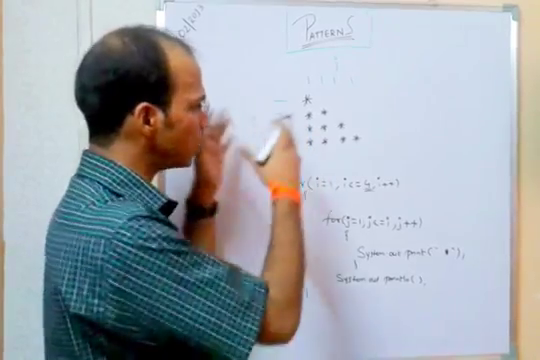 02/2023
PATTERNS
j
*
* *
* * *
* * * *
(i=1, i<=4, i++)
{
for(j=1, j<=i, j++)
{
System.out.print(" * ");
}
System.out.println( );
}